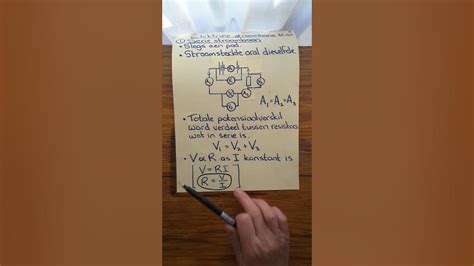 Elektriese stroombane
① Serie stroombaan
• Slegs een pad.
• Stroomsterkte oral dieselfde
A₁=A₂=A₃
• Totale potensiaalverskil
word verdeel tussen resistors
wat in serie is.
V₁ = V₂ + V₃
• V ∝ R as I konstant is
V = RI
R = V/I